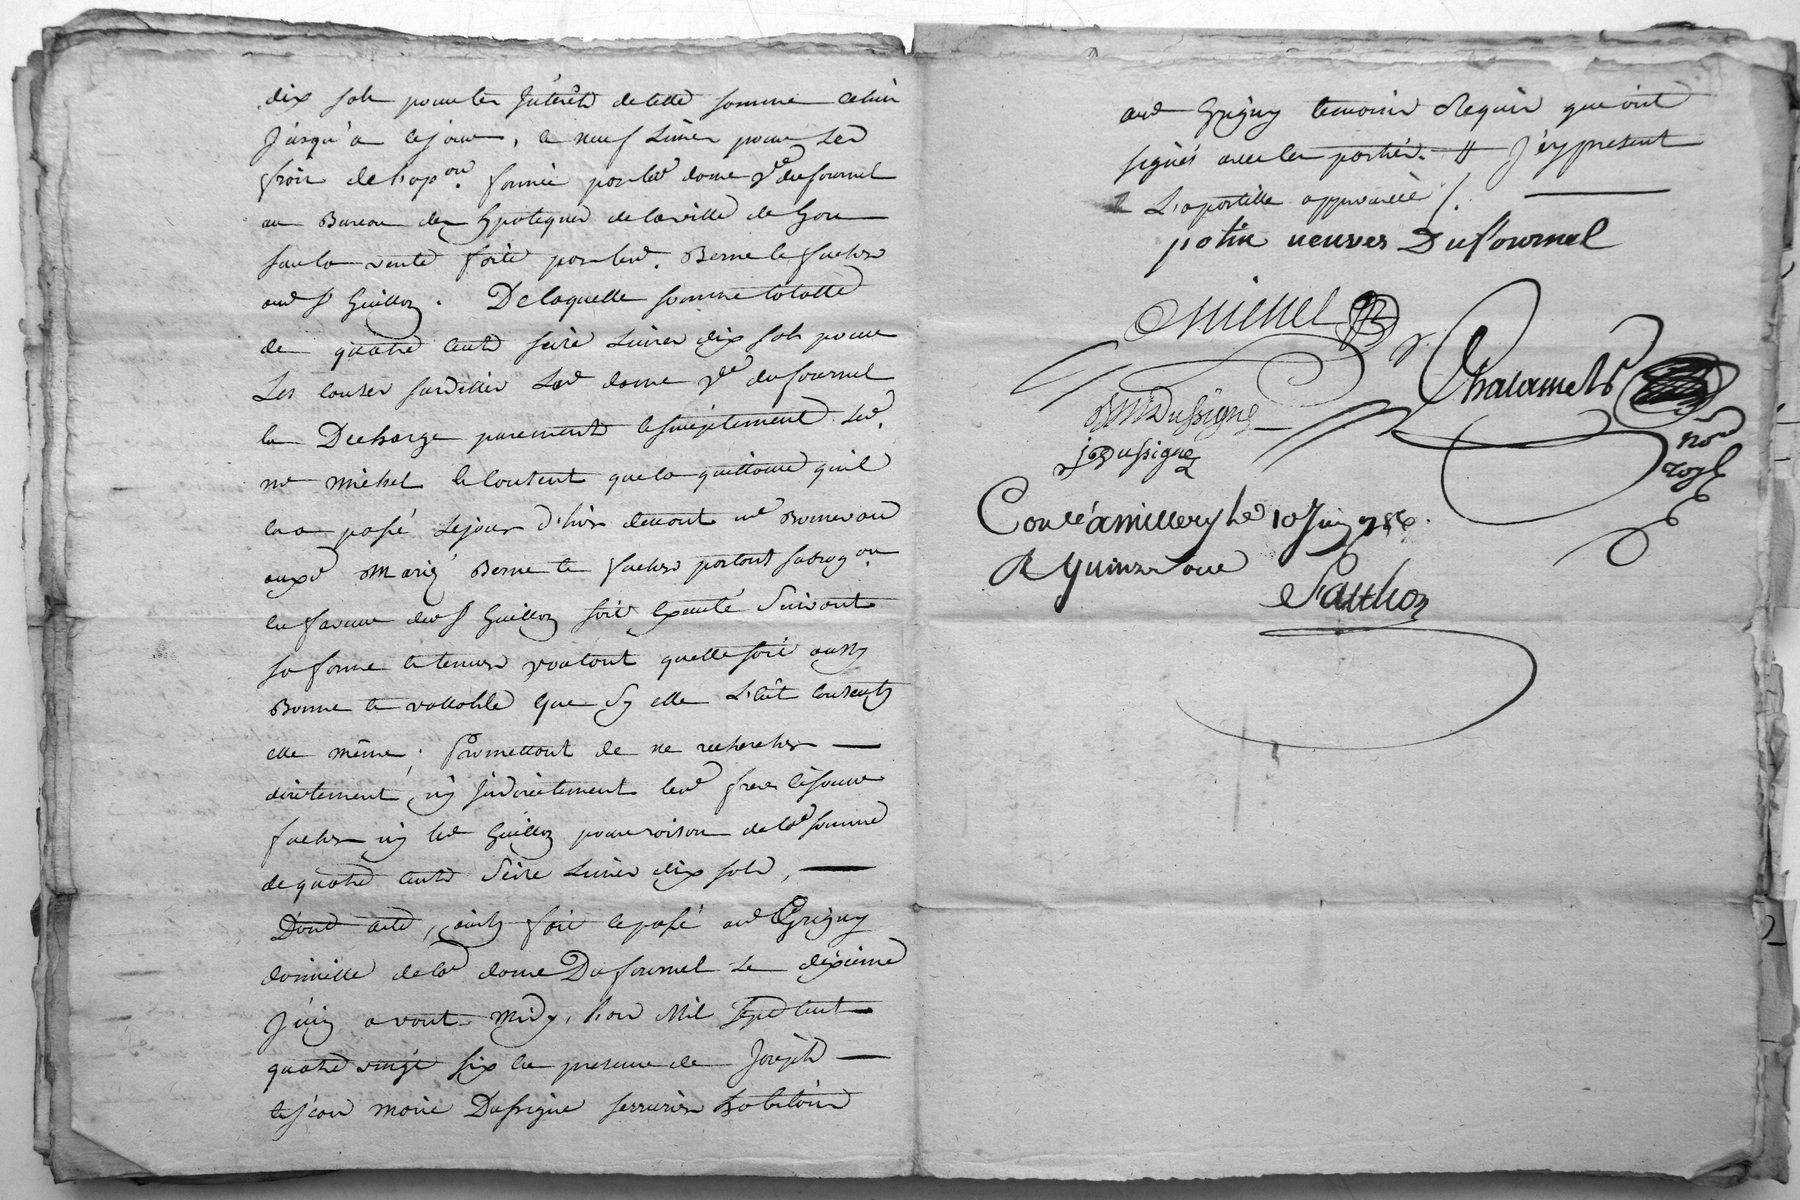 dix sols pour les Jnterêts de cette somme echus
Jusqu'a ce jour, et neuf Livres pour Les
frais de l'opon. formée par lad. dame Ve. dufournel
au Bureau des hypoteques de la ville de Lyon
sur la vente faite par led. Berne et sa fachs
aud Sr Guillon. De laquelle somme totalle
de quatre cents seize Livres dix sols pour
Les causes susdittes Lad dame Ve dufournel
la Decharge purement et simplement led.
me Michel et consent que la quittance qu'il
en a passé Lejour d'hier devant me
auxd Mariés Berne et portant subrogon.
en faveur dud Sr Guillon soit Executé Suivant
sa forme et teneur voulant quelle soit aussy
Bonne et vallable que Sy elle L'eût consenty
elle même; Promettant de ne rechercher
directement ny Jndirectement led.
ny led Guillon pour raison de lad somme
de quatre cents Seize Livres dix sols,
Dont acte, ainsy fait et passé aud Grigny
domicille de lad dame Dufournel Le dixieme
Juin avant midy, l'an Mil Sept Cent
quatre vingt six en presence de Joseph
et Jean marie Dussigne serruriers habitans
aud Grigny temoins Requis qui ont
signés avec les parties. # J'ey present
# L'apostille approuvée /.
potin veuves Dufournel
Michel
Chalamels
JM Dussigne
j Dussigne
nore
royl
Conlé a millery le 10 Juin 1786.
R quinze sous
Sauthon